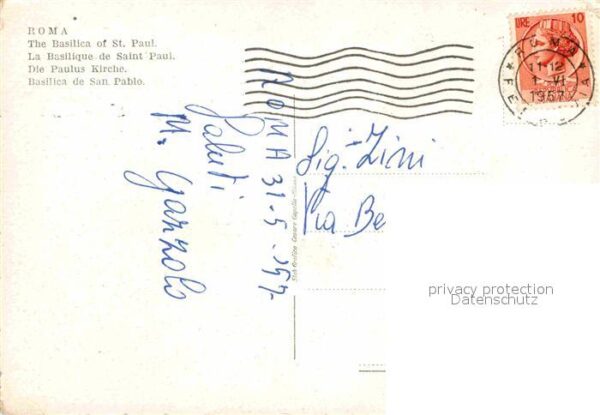 ROMA
The Basilica of St. Paul.
La Basilique de Saint Paul.
Die Paulus Kirche.
Basilica de San Pablo.
LIRE 10
ROMA
11-12
1-VI
1957
FERROVIA
ROMA 31-5-957-
Saluti
M. Gazzolo
Sig. Zini
Via Be
privacy protection
Datenschutz